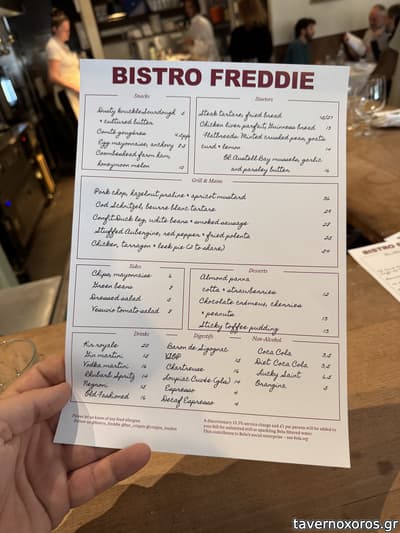 BISTRO FREDDIE
Snacks
Dusty Knuckle Sourdough
+ cultured butter
Comté gougères
Egg mayonnaise, anchovy
Coombeshead farm ham,
honeymoon melon 12
Starters
Steak tartare, fried bread
Chicken liver parfait, Guinness bread 13
Flatbreads: Minted crushed peas, goats
curd + lemon 14
Or Austell Bay mussels, garlic
and parsley butter 16
Grill & Mains
Pork chop, hazelnut praline + apricot mustard
Cod Schnitzel, beurre blanc tartare
Confit Duck leg, white beans + smoked sausage
Stuffed Aubergine, red pepper + fried polenta
Chicken, tarragon + leek pie (2 to share)
Sides
Chips, mayonnaise 6
Green beans
Dressed salad
Vesuvio tomato salad
Desserts
Almond panna
cotta + strawberries 12
Chocolate cremeux, cherries
+ peanuts 13
Sticky toffee pudding 13
Drinks
Kir royale
Gin martini
Vodka martini 16
Rhubarb Spritz 14
Negroni
Old Fashioned 16
Digestifs
Baron de Sigognac
VSOP
Chartreuse
Loupiac Cuvée (gls)
Espresso
Decaf Espresso
Non-Alcohol
Coca Cola 3.5
Diet Coca Cola 3.5
Lucky Saint 6.5
Orangina
Please let us know of any food allergies
A discretionary 13.5% service charge and £1 per person will be added to
your bill for unlimited still or sparkling Belu filtered water.
This contributes to Belu's social enterprise - see belu.org
BISTRO
tavernoxoros.gr